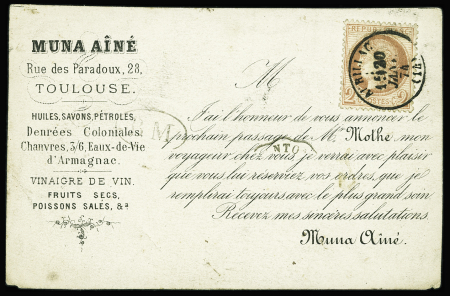 MUNA AÎNÉ
Rue des Paradoux, 28,
TOULOUSE.
HUILES, SAVONS, PÉTROLES,
Denrées Coloniales,
Chanvres, 3/6, Eaux-de-Vie
d'Armagnac.
VINAIGRE DE VIN.
FRUITS SECS,
POISSONS SALÉS, &ª
M
J'ai l'honneur de vous annoncer le
prochain passage de Mr Mothe, mon
voyageur chez vous, je verrai avec plaisir
que vous lui réserviez vos ordres, que je
remplirai toujours avec le plus grand soin.
Recevez mes sincères salutations.
Muna Aîné.
AURILLAC
20
(14)
M
NTO